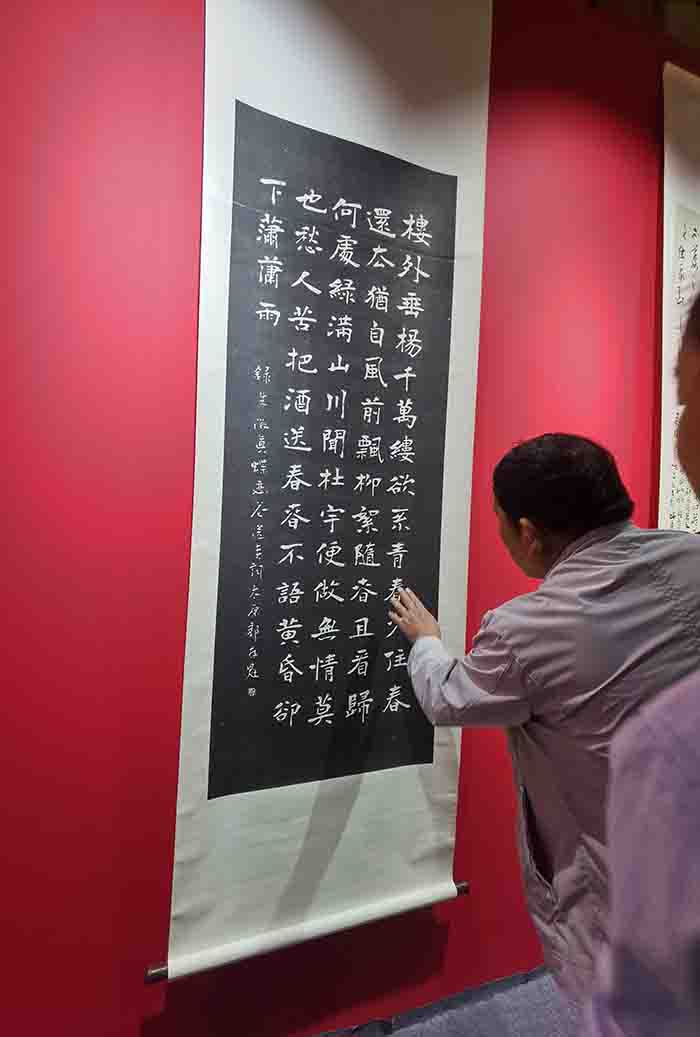 樓外垂楊千萬縷欲系青春少住春
還去猶自風前飄柳絮隨春且看歸
何處綠滿山川聞杜宇便做無情莫
也愁人苦把酒送春春不語黃昏卻
下瀟瀟雨
錄朱淑眞蝶恋花送春詞太原郭